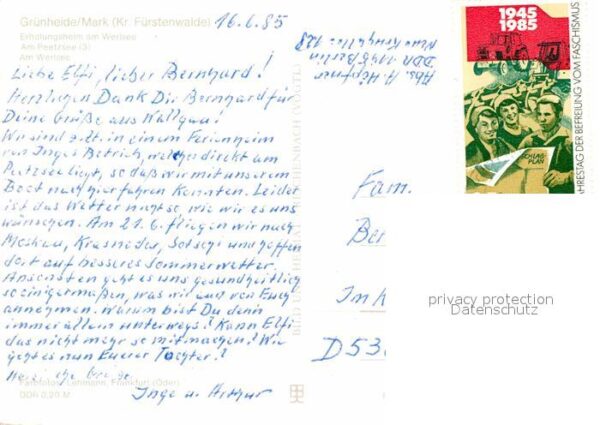 Grünheide/Mark (Kr. Fürstenwalde)
Erholungsheim am Werlsee
Am Peetzsee (3)
Am Werlsee
16.6.85
Liebe Elfi, lieber Bernhard!
Herzlichen Dank Dir Bernhard für
Deine Grüße aus Wallgau!
Wir sind z.Zt. in einem Ferienheim
von Inges Betrieb, welches direkt am
Peetzsee liegt, so daß wir mit unserem
Boot nach hier fahren konnten. Leider
ist das Wetter nicht so, wie wir es uns
wünschen. Am 21.6. fliegen wir nach
Moskau, Krasnodar, Sotschi und hoffen
dort auf besseres Sommerwetter.
Ansonsten geht es uns gesundheitlich
so einigermaßen, was wir auch von Euch
annehmen. Warum bist Du denn
immer allein unterwegs? Kann Elfi
das nicht mehr so mitmachen? Wie
geht es nun Eurer Tochter?
Herzliche Grüße
Inge u. Arthur
Farbfotos: Lehmann, Frankfurt (Oder)
DDR 0,20 M
BILD UND HEIMAT REICHENBACH (VOGTL)
Abs. A. Höpfner
DDR Berlin
128
1945
1985
SCHLAG-
PLAN
JAHRESTAG DER BEFREIUNG VOM FASCHISMUS
Fam.
Be
Im
D 53
privacy protection
Datenschutz